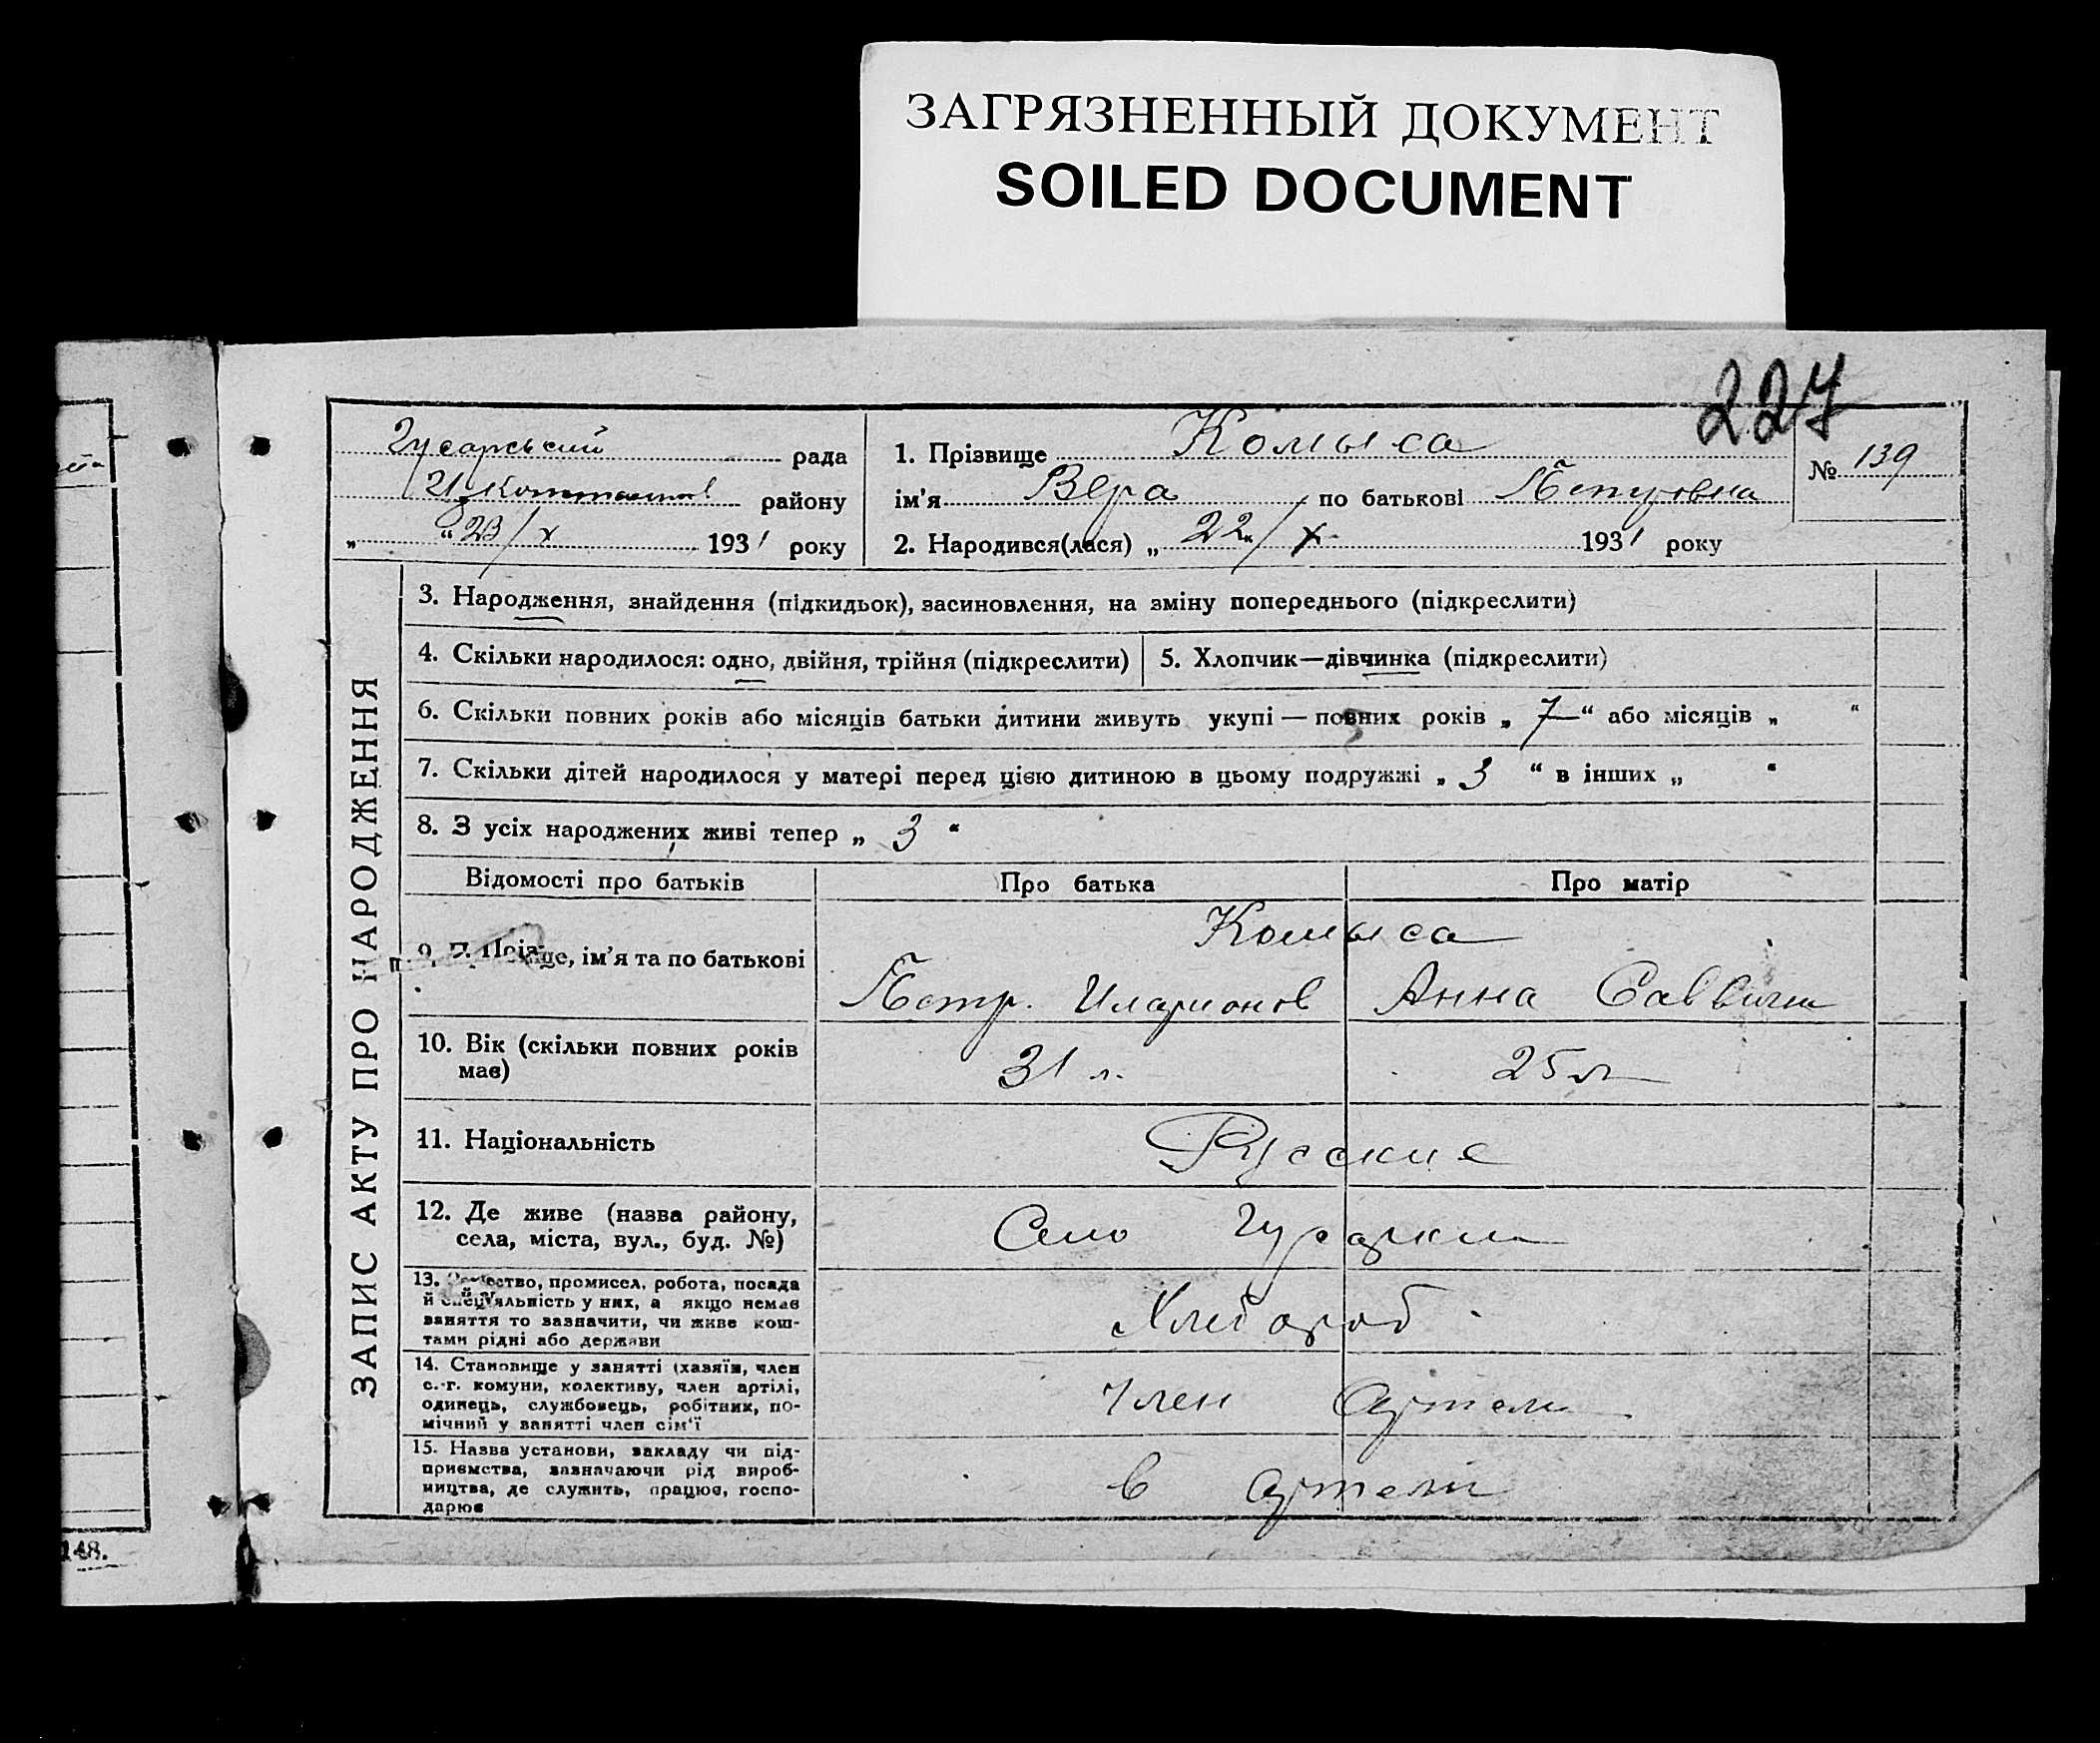 ЗАГРЯЗНЕННЫЙ ДОКУМЕНТ
SOILED DOCUMENT
227
Гусарський рада
району
„ “ 23/X 1931 року
1. Прізвище Комыса
ім'я Вера по батькові Петровна
2. Народився(лася) „ 22 “ / X 1931 року
№ 139
ЗАПИС АКТУ ПРО НАРОДЖЕННЯ
3. Народження, знайдення (підкидьок), засиновлення, на зміну попереднього (підкреслити)
4. Скільки народилося: одно, двійня, трійня (підкреслити)
5. Хлопчик—дівчинка (підкреслити)
6. Скільки повних років або місяців батьки дитини живуть укупі — повних років „ 7 “ або місяців „ “
7. Скільки дітей народилося у матері перед цією дитиною в цьому подружжі „ 3 “ в інших „ “
8. З усіх народжених живі тепер „ 3 “
Відомості про батьків
Про батька
Про матір
9. ім'я та по батькові
Комыса
Петр. Иларионов
Анна Саввичн
10. Вік (скільки повних років
має)
31 л.
25 л
11. Національність
Русские
12. Де живе (назва району,
села, міста, вул., буд. №)
Село Гусарки
13. промисел, робота, посада
й спеціяльність у них, а якщо немає
заняття то зазначити, чи живе кош-
тами рідні або держави
Хлебороб
14. Становище у занятті (хазяїн, член
с.-г. комуни, колективу, член артілі,
одинець, службовець, робітник, по-
мічний у занятті член сім'ї
Член Артели
15. Назва установи, закладу чи під-
приємства, зазначаючи рід вироб-
ництва, де служить, працює, госпо-
дарює
в Артели
148.